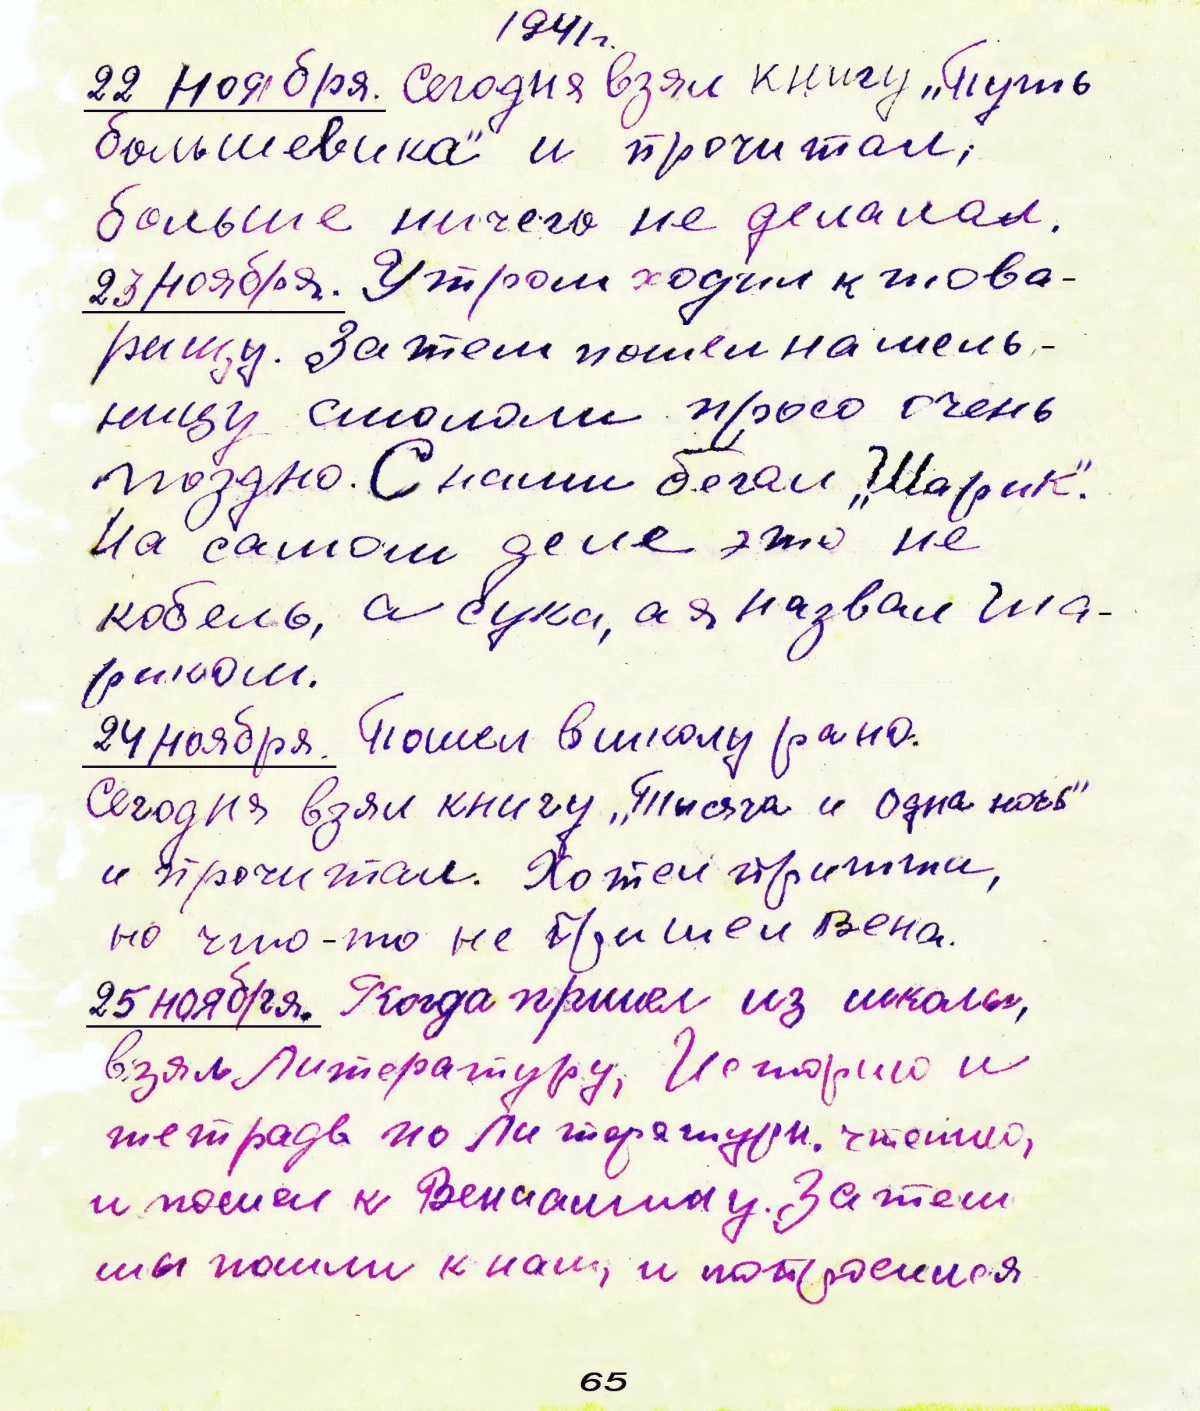 1941г.
22 ноября. Сегодня взял книгу „Путь
большевика" и прочитал,
больше ничего не делалал.
23 ноября. Утром ходил к това-
рищу. Затем пошел на мель-
ницу смололи просо очень
поздно. С нами бегал „Шарик".
На самом деле это не
кобель, а сука, а я назвал Ша-
риком.
24 ноября. Пошел в школу рано.
Сегодня взял книгу „Тысяча и одна ночь"
и прочитал. Хотел притти,
но что-то не пришел Вена.
25 ноября. Когда пришел из школы,
взял Литературу, Историю и
тетрадь по Литературн. чтению,
и пошел к Вениамину. Затем
мы пошли к нам, и
65